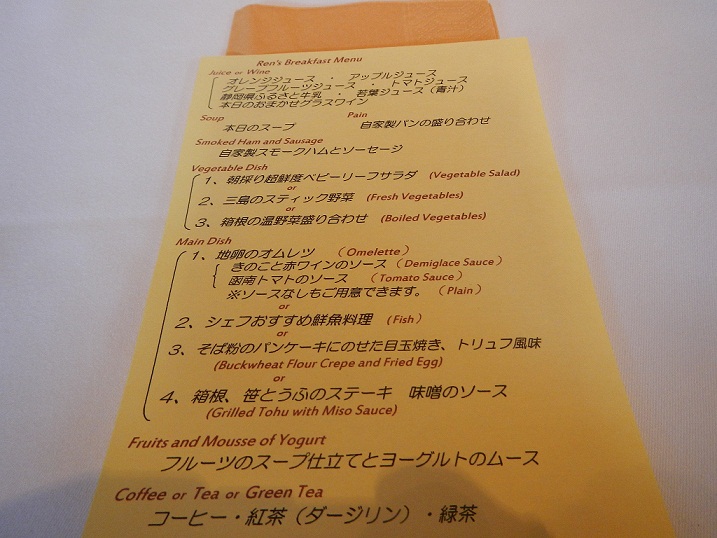 Ren's Breakfast Menu
Juice or Wine
オレンジジュース ・ アップルジュース
グレープフルーツジュース ・ トマトジュース
静岡県ふるさと牛乳 ・ 若葉ジュース（青汁）
本日のおまかせグラスワイン
Soup Pain
本日のスープ 自家製パンの盛り合わせ
Smoked Ham and Sausage
自家製スモークハムとソーセージ
Vegetable Dish
1、朝採り超鮮度ベビーリーフサラダ (Vegetable Salad)
or
2、三島のスティック野菜 (Fresh Vegetables)
or
3、箱根の温野菜盛り合わせ (Boiled Vegetables)
Main Dish
1、地卵のオムレツ （Omelette）
きのこと赤ワインのソース（Demiglace Sauce）
函南トマトのソース （Tomato Sauce）
※ソースなしもご用意できます。（Plain）
or
2、シェフおすすめ鮮魚料理 (Fish)
or
3、そば粉のパンケーキにのせた目玉焼き、トリュフ風味
(Buckwheat Flour Crepe and Fried Egg)
or
4、箱根、笹とうふのステーキ 味噌のソース
(Grilled Tohu with Miso Sauce)
Fruits and Mousse of Yogurt
フルーツのスープ仕立てとヨーグルトのムース
Coffee or Tea or Green Tea
コーヒー・紅茶（ダージリン）・緑茶